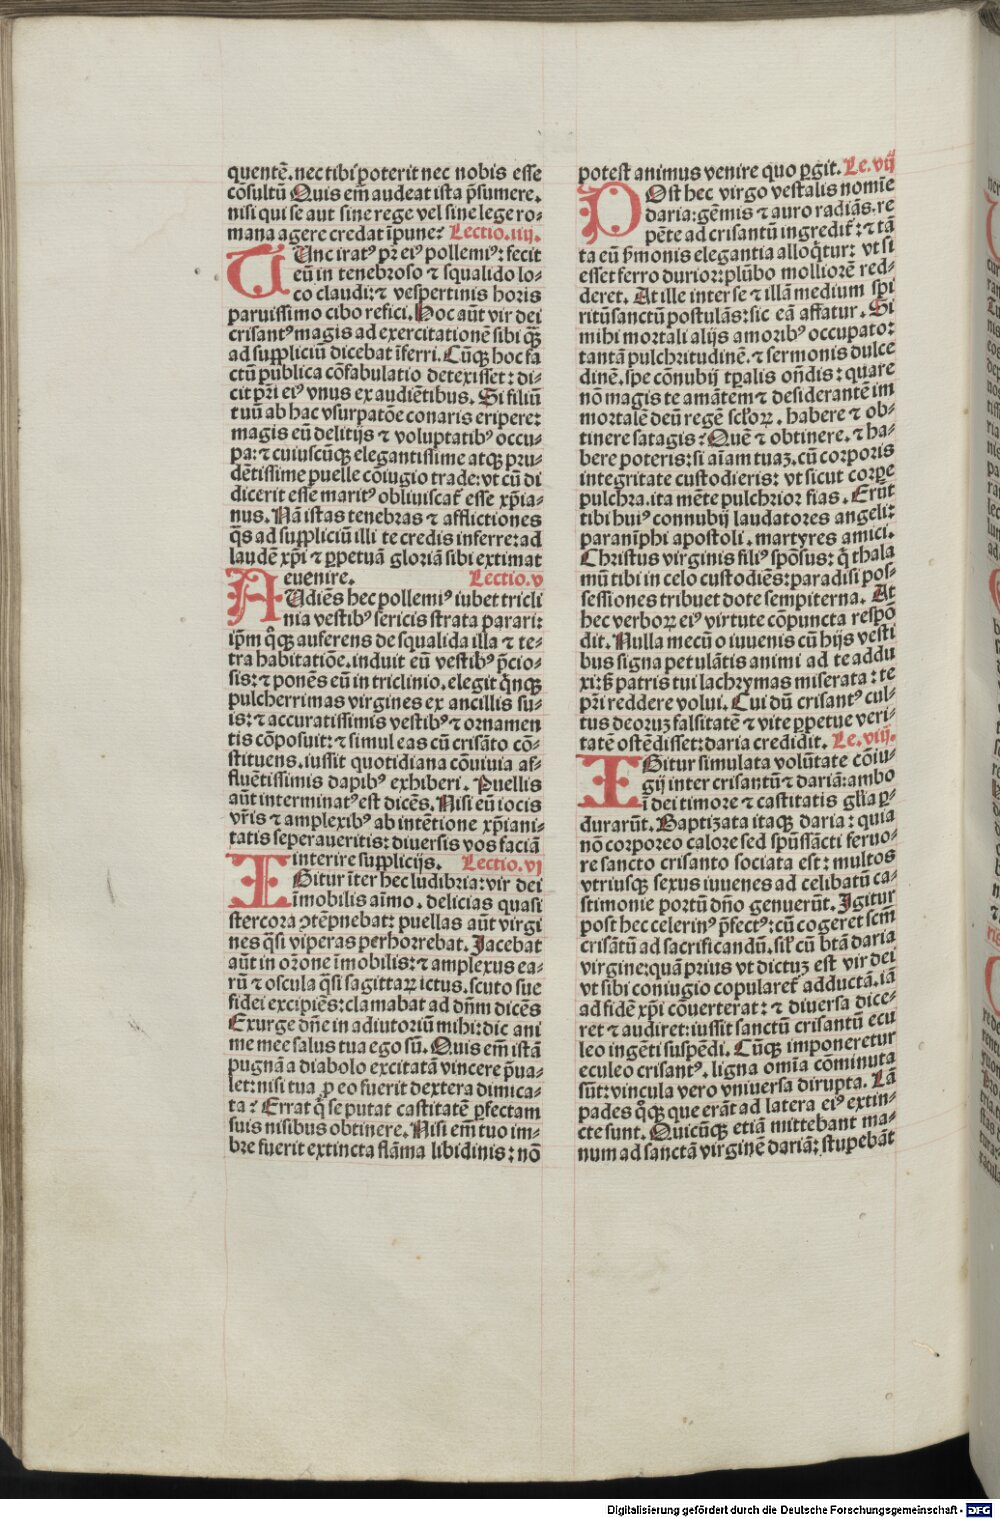 quentē. nec tibi poterit nec nobis esse
cōsultū Quis em̄ audeat ista p̄sumere.
nisi qui se aut sine rege vel sine lege ro⸗
mana agere credat īpune? Lectio.iiij.
TUnc iratꝰ pr̄ eiꝰ pollemiꝰ: fecit
eū in tenebroso ⁊ squalido lo⸗
co claudi: ⁊ vespertinis horis
paruissimo cibo refici. Hoc aūt vir dei
crisantꝰ magis ad exercitationē sibi qꝫ̄
ad suppliciū dicebat īferri. Cūqꝫ hoc fa
ctū publica cōfabulatio detexisset: di⸗
cit pr̄i eiꝰ vnus ex audiētibus. Si filiū
tuū ab hac vsurpatōe conaris eripere:
magis eū delitijs ⁊ voluptatibꝰ occu⸗
pa: ⁊ cuiuscūqꝫ elegantissime atqꝫ pru⸗
dētissime puelle cōiugio trade: vt cū di
dicerit esse maritꝰ obliuiscat᷑ esse xp̄ia⸗
nus. Nā istas tenebras ⁊ afflictiones
q̄s ad suppliciū illi te credis inferre: ad
laudē xp̄i ⁊ ꝑpetuā gloriā sibi extimat
euenire. Lectio.v
AUdiēs hec pollemiꝰ iubet tricli
nia vestibꝰ sericis strata parari:
ip̄m qͦqꝫ auferens de squalida illa ⁊ te⸗
tra habitatiōe. induit eū vestibꝰ p̄cio⸗
sis: ⁊ ponēs eū in triclinio. elegit qͥnqꝫ
pulcherrimas virgines ex ancillis su⸗
is: ⁊ accuratissimis vestibꝰ ⁊ ornamen
tis cōposuit: ⁊ simul eas cū crisāto cō⸗
stituens. iussit quotidiana cōuiuia af⸗
fluētissimis dapibꝰ exhiberi. Puellis
aūt interminatꝰ est dicēs. Nisi eū iocis
vr̄is ⁊ amplexibꝰ ab intētione xp̄iani⸗
tatis seperaueritis: diuersis vos faciā
interire supplicijs. Lectio.vj
IGitur īter hec ludibria: vir dei
īmobilis aīmo. delicias quasi
stercora ↄtēpnebat: puellas aūt virgi
nes q̄si viperas perhorrebat. Jacebat
aūt in or̄one īmobilis: ⁊ amplexus ea⸗
rū ⁊ oscula q̄si sagittaꝝ ictus. scuto sue
fidei excipiēs: clamabat ad dn̄m dicēs
Exurge dn̄e in adiutoriū mihi: dic ani
me mee salus tua ego sū. Quis em̄ istā
pugnā a diabolo excitatā vincere p̄ua⸗
let: nisi tua ꝓ eo fuerit dextera dimica⸗
ta? Errat qͥ se putat castitatē ꝑfectam
suis nisibus obtinere. Nisi em̄ tuo im⸗
bre fuerit extincta flāma libidinis: nō
potest animus venire quo ꝑgit. Le.vij
POst hec virgo vestalis nomīe
daria: gēmis ⁊ auro radiās. re
pēte ad crisantū ingredit᷑: ⁊ tā
ta eū ꝑmonis elegantia alloqͥtur: vt si
esset ferro durior: plūbo molliorē red⸗
deret. At ille inter se ⁊ illā medium spi
ritū sanctū postulās: sic eā affatur. Si
mihi mortali alijs amoribꝰ occupato:
tantā pulchritudinē. ⁊ sermonis dulce
dinē. spe cōnubij tp̄alis on̄dis: quare
nō magis te amātem ⁊ desiderantē im
mortalē deū regē sclōꝝ. habere ⁊ ob⸗
tinere satagis? Quē ⁊ obtinere. ⁊ ha⸗
bere poteris: si aīam tuaꝫ. cū corporis
integritate custodieris: vt sicut corpe
pulchra. ita mēte pulchrior fias. Erūt
tibi huiꝰ connubij laudatores angeli:
paranīphi apostoli. martyres amici.
Christus virginis filiꝰ spōsus: qͥ thala
mū tibi in celo custodiēs: paradisi pos⸗
sessiones tribuet dote sempiterna. At
hec verboꝝ eiꝰ virtute cōpuncta respō
dit. Nulla mecū o iuuenis cū hijs vesti
bus signa petulātis animi ad te addu
xi: sꝫ patris tui lachrymas miserata: te
pr̄i reddere volui. Cui dū crisantꝰ cul⸗
tus deoruꝫ falsitatē ⁊ vite ꝑpetue veri⸗
tatē ostēdisset: daria credidit. Le.viij.
IGitur simulata volūtate cōiu⸗
gij inter crisantū ⁊ dariā: ambo
ī dei timore ⁊ castitatis gl̄ia ꝑ⸗
durarūt. Baptizata itaqꝫ daria: quia
nō corporeo calore sed spūssācti feruo⸗
re sancto crisanto sociata est: multos
vtriusqꝫ sexus iuuenes ad celibatū ca⸗
stimonie portū dn̄o genuerūt. Igitur
post hec celerinꝰ p̄fectꝰ: cū cogeret scm̄
crisātū ad sacrificandū. silr̄ cū btā daria
virgine: quā prius vt dictuꝫ est vir dei
vt sibi coniugio copularet᷑ adductā. iā
ad fidē xp̄i cōuerterat: ⁊ diuersa dice⸗
ret ⁊ audiret: iussit sanctū crisantū ecu
leo ingēti suspēdi. Cūqꝫ imponeretur
eculeo crisantꝰ. ligna omīa cōminuta
sūt: vincula vero vniuersa dirupta. Lā
pades qͦqꝫ que erāt ad latera eiꝰ extin⸗
cte sunt. Quicūqꝫ etiā mittebant ma⸗
num ad sanctā virginē dariā: stupebāt
Digitalisierung gefördert durch die Deutsche Forschungsgemeinschaft - DFG